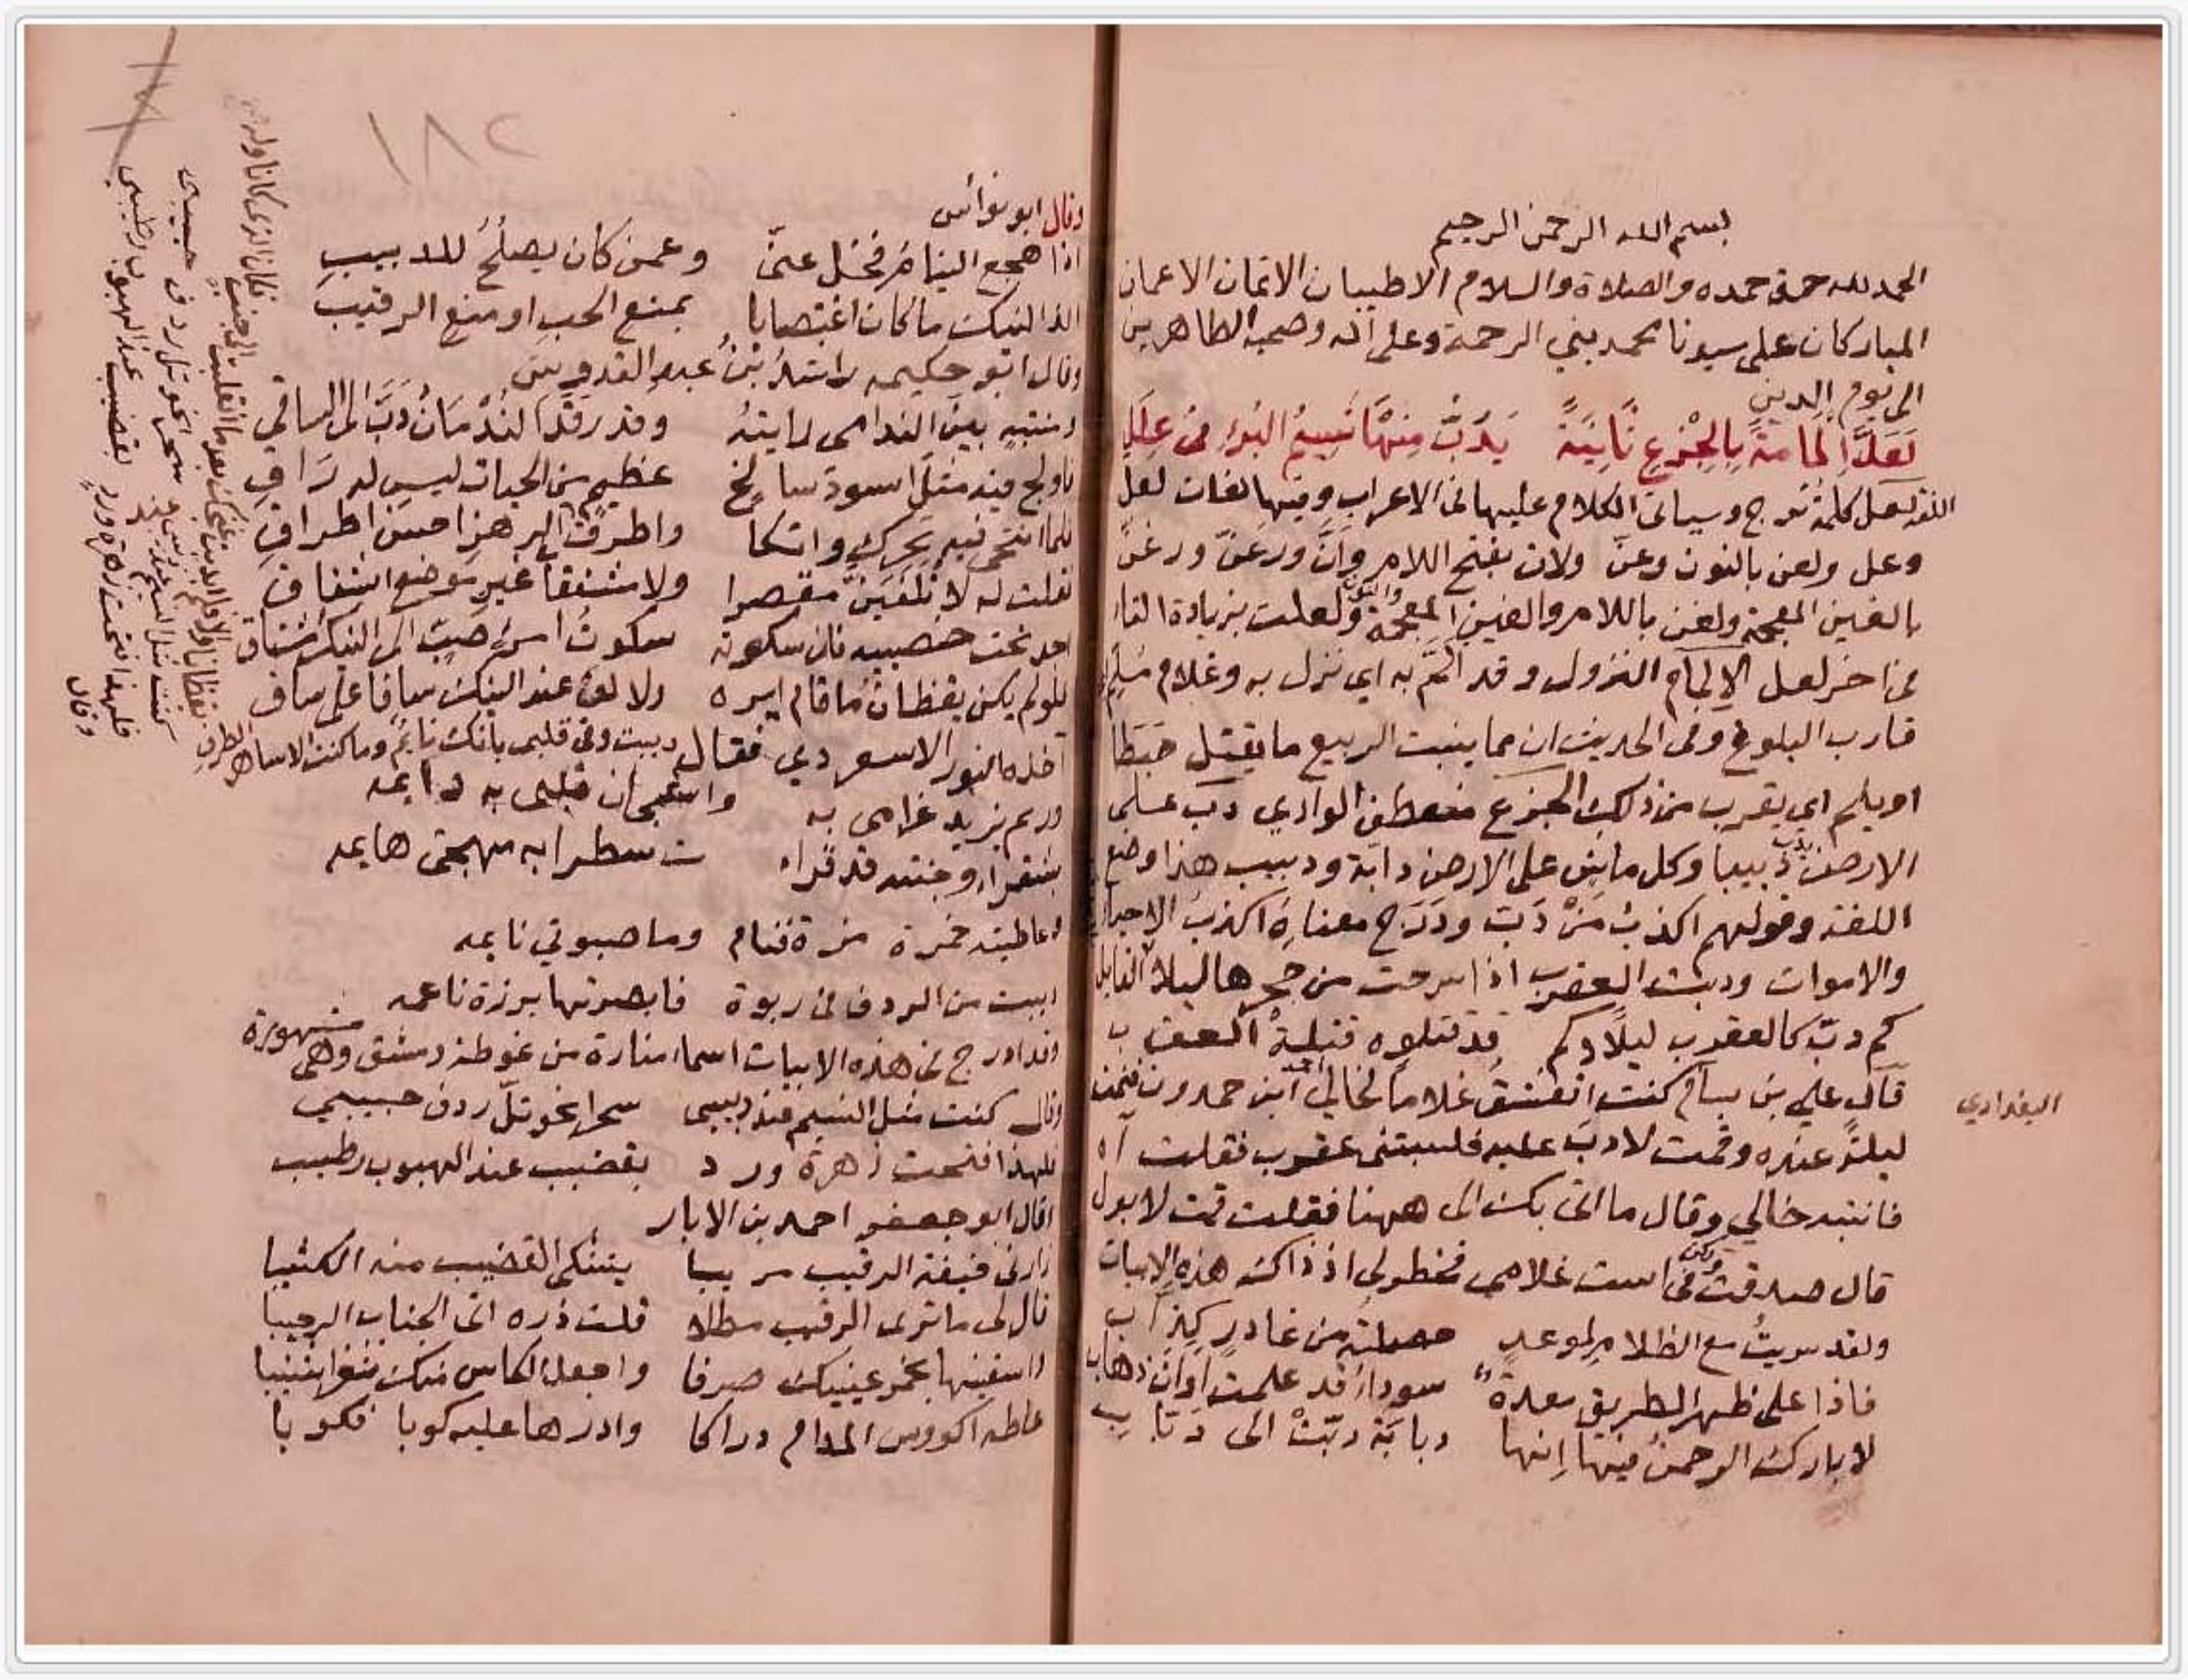 بسم الله الرحمن الرحيم
الحمد لله حق حمده والصلاة والسلام الاطيبان الاتمان الاعمان
المباركان على سيدنا محمد نبي الرحمة وعلى آله وصحبه الطاهرين
الى يوم الدين
لَعَلَّ إِلمامةً بِالجْزعِ ثَانِيَةً يَدِبُّ مِنْهَا نَسِيمُ البُرْءِ في عِلَلِي
اللغة لعل كلمة ترج وسياتى الكلام عليها فى الاعراب وفيها لغات لعل
وعل ولعن بالنون وعنّ ولان بفتح اللام وانَّ ورعنّ ورغنّ
بالغين المعجمة ولغن باللام والغين المعجمة والنون ولعلت بزيادة التاء
فى اخر لعل الإلمام النزول وقد المّ به اى نزل به وغلام مُلِمّ
قارب البلوغ وفى الحديث ان مما ينبت الربيع ما يقتل حَبَطًا
او يلم اى يقرب من ذلك الجزع منعطف الوادي دب على
الارض يدب دبيبا وكل ماش على الارض دابة ودبيب هذا وضع
اللغة وقولهم اكذب مَنْ دَبّ ودَرَج معناه اكذب الاحياء
والاموات ودبت العقرب اذا سرحت من جحرها ليلا القايل
كم دبّ كالعقرب ليلًا وكم قد قتلوه قتلة العقرب
قال علي بن بسام البغدادي كنت اتعشق غلاما لخالي احمد ابن حمدون فنمت
ليلةً عنده وقمت لادبّ عليه فلسبتنى عقرب فقلت آه
فانتبه خالي وقال ما اتى بك الى ههنا فقلت قمت لابول
قال صدقت ولكن فى است غلامى فخطر لى اذ ذاك هذه الابيات
ولقد سريتُ مع الظلام لموعدٍ حصلته من غادرٍ كذاب
فاذا على ظهر الطريق معدةً سوداء قد علمت اوان ذهاب
لا بارك الرحمن فيها إنها دبابَة دبّتْ الى دباب
وقال ابو نواس
اذا هجع النيام فخل عنّى وعمن كان يصلحُ للدبيب
الذ النيك ما كان اغتصابا بمنع الحب او منع الرقيب
وقال ابو حكيمه راشد بنُ عبد القدوس
ومنتبه بين الندامى رايته وقد رقد الندمان دَبَّ الى الساقي
فاولج فيه مثل اسود سالخ عظيم من الحيات ليس له راقِ
فلما انتحى فيه تحرك واتكا واطرق الرهز احسن اطراقِ
فقلت له لا تلفين مقصرا ولا مشفقا غير موضع اشفاق
اجد تحت خصييه فان سكوته سكوت امرئ صبٍ الى النيك مشتاق
فلو لم يكن يقظان ما قام ايره ولا لف عند النيك ساقا على ساقِ
اخذه النور الاسعردي فقال دببت وفى قلبى بانك نائم وما كنت الا ساهر الطرفِ
وريم يزيد غرامى به واشقى ان قلبى به دايمه
واعاطيته خمرة مزة فنام وما صبوتي نايمه
دببت من الردف فى ربوة فابصرتها برزة ناعمه
وقد ادرج فى هذه الابيات اسماء منارة من غوطة دمشق وهى مشهورة
وقال كنت مثل النسيم عند دبيبى سحرا نحو تلّ ردف حبيبي
فلهذا فتحت زهرة ورد بقضيب عند الهبوب رطيب
وقال ابو جعفر احمد بن الابار
زارنى خيفة الرقيب مريبا يتشكى القضيب منه الكثيبا
قال لى ما ترى الرقيب مطلا قلت ذره اتى الجناب الرحيبا
واسقنيها بخمر عينيك صرفا واجعل الكاس منك ثغرا شنيبا
عاطه اكووس المدام دراكا وادرها عليه كوبا فكوبا
٢٨١
كنت مثل النسيم
سحرا نحو تل ردف حبيبى
فلهذا فتحت زهرة وردٍ بقضيب عند الهبوب رطيب
وقال